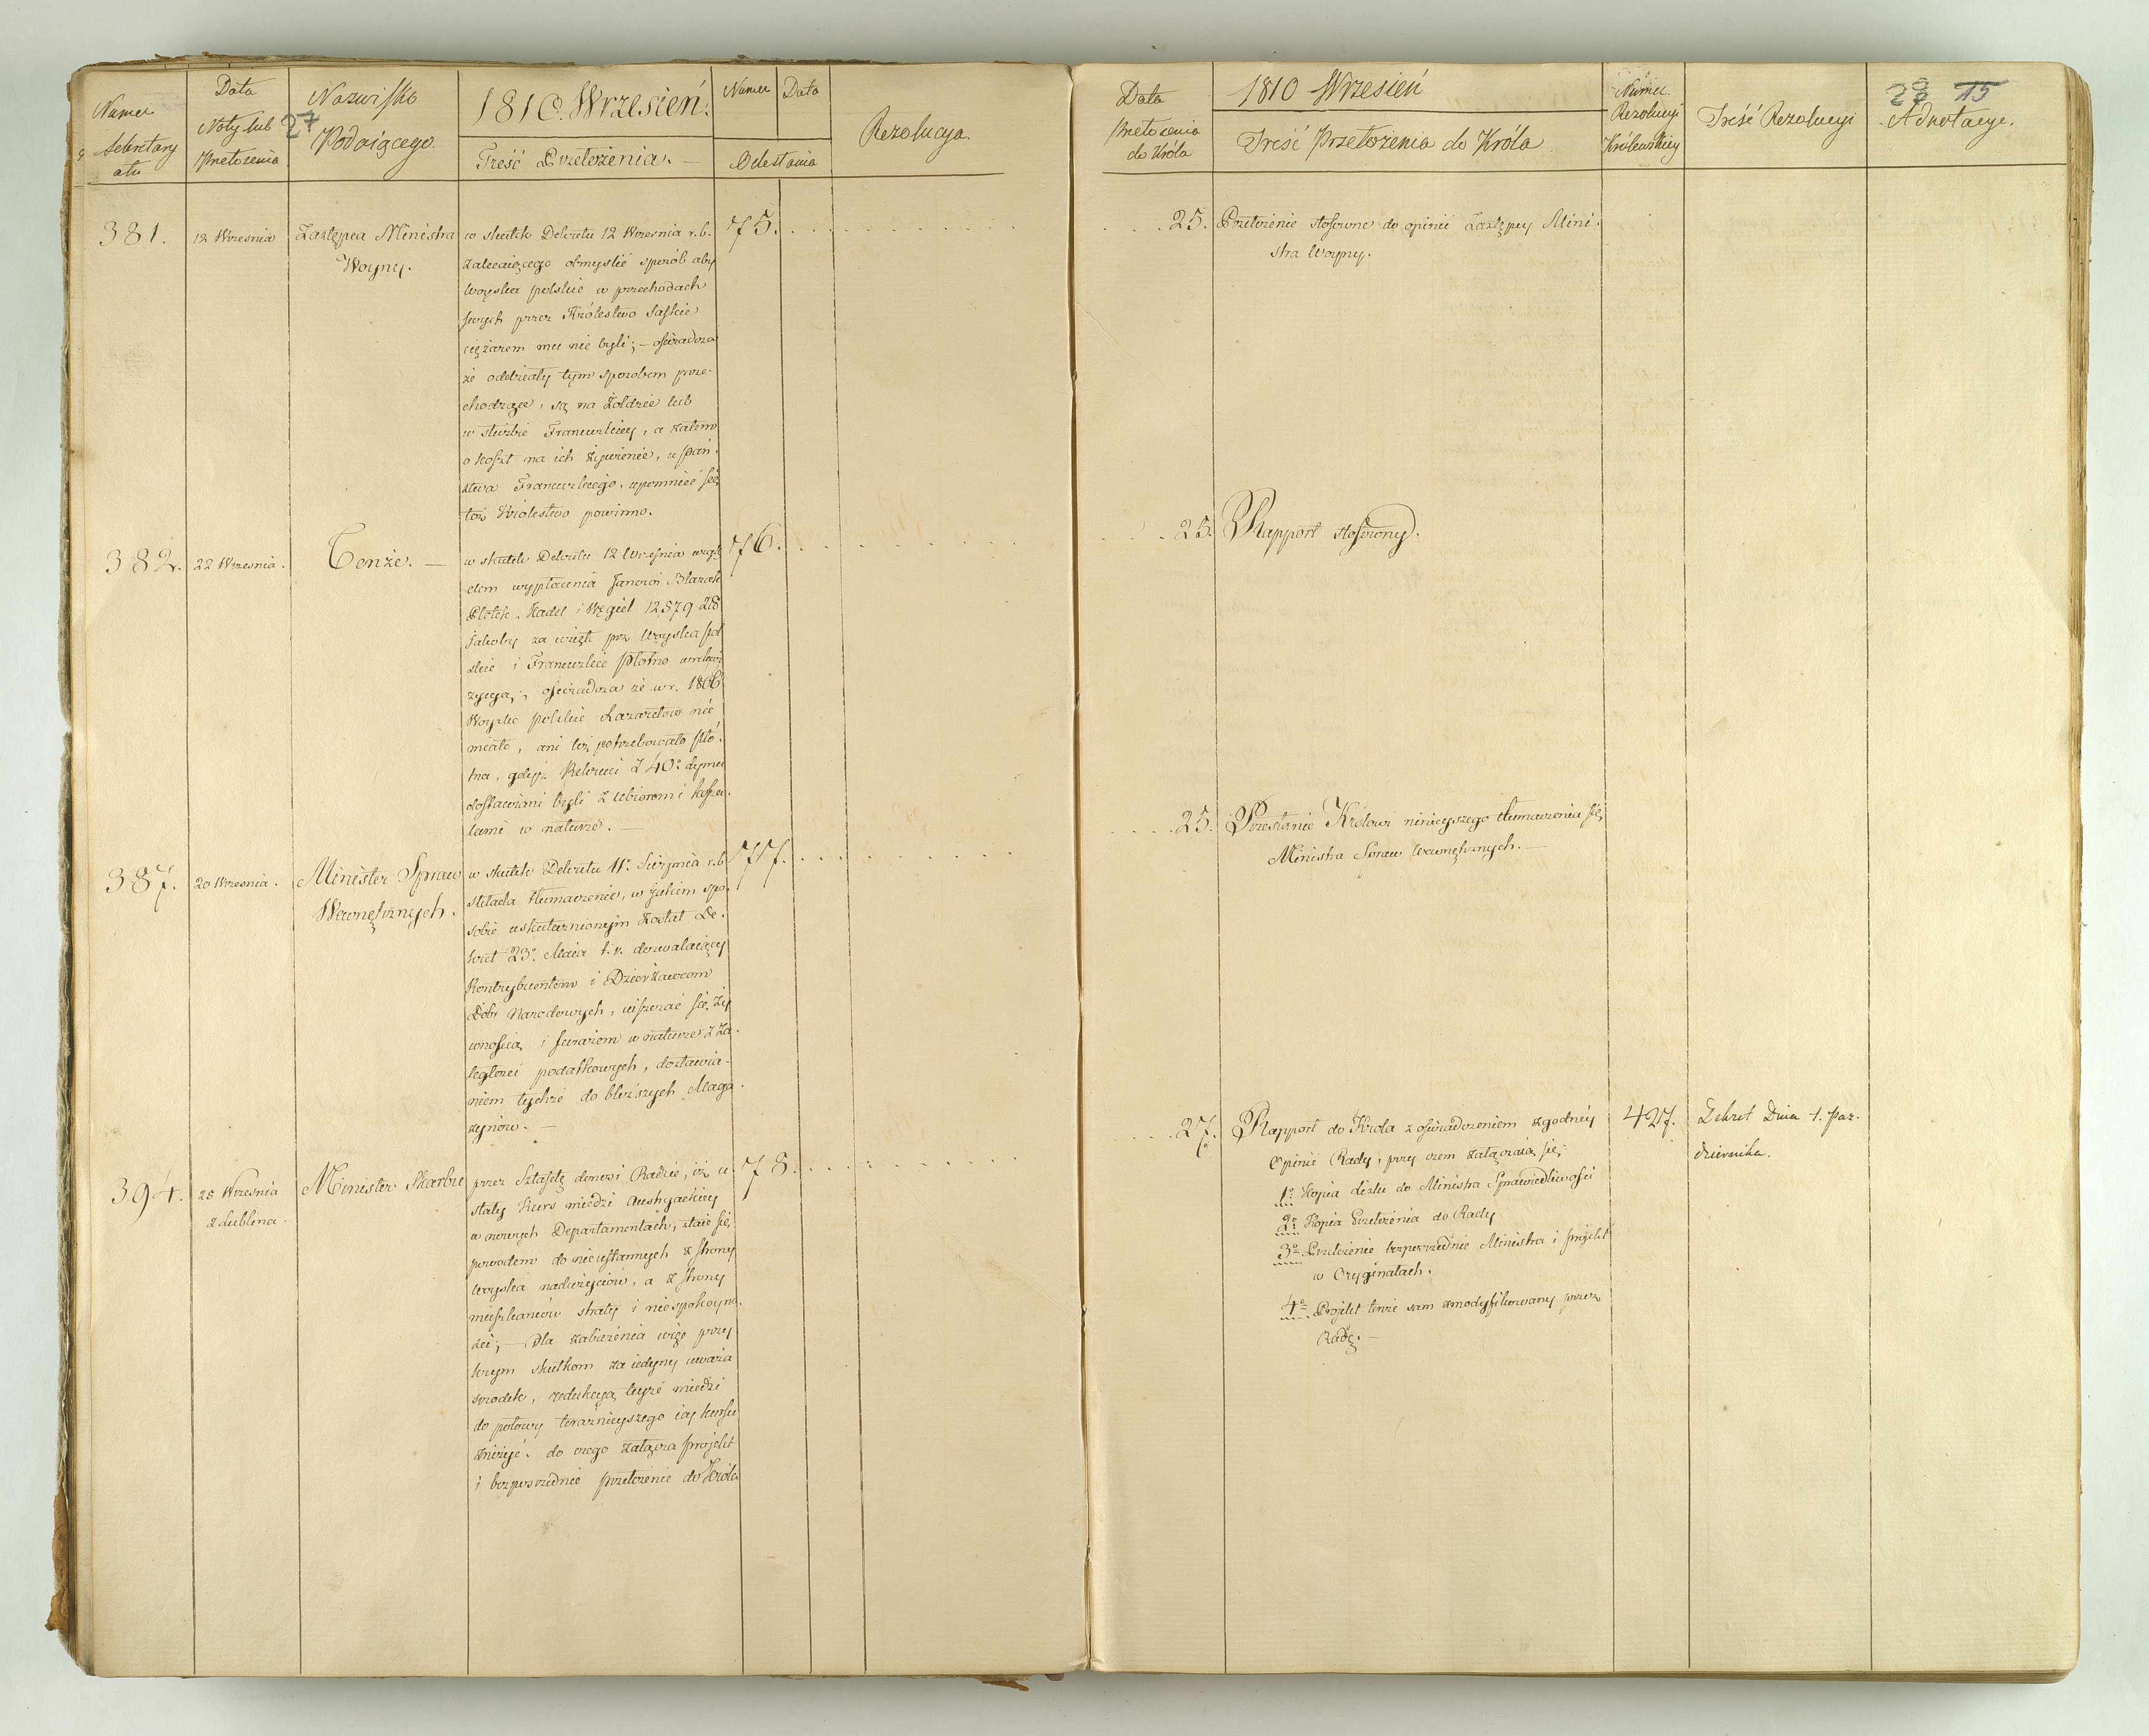 Numer
Sekretary
atu
Data
Noty lub
Przełożenia
27
Nazwisko
Podaiącego.
1810. Wrzesień.
Treść Przełożenia. —
Numer
Data
Odesłania
Rezolucya.
381.
12 Wrzesnia
Zastępca Ministra
Woyny.
w skutek Dekretu 12 Wrzesnia r.b.
zalecaiącego obmyslić sposób aby
woyska polskie w przechodach
swych przez Królestwo Saskie
ciężarem mu nie byli; – oświadcza
że oddziały tym sposobem prze-
chodzące, są na Żołdzie lub
w służbie Francuzkiey, a zatem
o koszt na ich żywienie, u Pań-
stwa Francuzkiego, upomnieć się
toż Królestwo powinno.
75.
382.
22 Wrzesnia.
Tenże. —
w skutek Dekretu 12 Wrzesnia wzglę
dem wypłacenia Janowi Blazek
Kadel i Węgiel 12579
jakoby za wzięte prz Woyska pol
skie i Francuzkie Płótno
oświadcza że w r. 1806
Woysko polskie Lazaretow nie
miało, ani też potrzebowało płó-
tna, gdyż Rekruci z 40o. dymu
dostawiani byli z ubiorem i koszu-
lami w naturze. —
76.
387.
20 Wrzesnia.
Minister Spraw
Wewnętrznych.
w skutek Dekretu 11o. Sierpnia r.b
składa tłumaczenie, w jakim spo-
sobie uskutecznionym został De-
kret 23o. Maia t.r. dozwalaiący
Kontrybuentom i Dzierżawcom
Dóbr Narodowych, uiszczać się ży
wnością i furażem w naturze z za-
ległosci podatkowych, dostawia-
niem tychże do bliższych Maga-
zynów. —
77.
394.
25 Wrzesnia
z Lublina.
Minister Skarbu
przez Sztafetę donosi Radzie, iż u-
stały kurs miedzi Austryackiey
w nowych Departamentach, staie się
powodem do nieustannych z strony
woyska nadużyciów, a z strony
mieszkańców straty i niespokoyno-
sci; — Dla zabieżenia więc przy
krym skutkom za iedyny uważa
srodek, redukcyą teyże miedzi
do połowy teraźnieyszego iey kursu
zniżyć. do czego załącza projekt
i bezposrzednie przełożenie do Króla
78.
Data
Przełożenia
do Króla
1810 Wrzesień
Treść Przełożenia do Króla
Numer
Rezolucyi
Królewskiey
Treść Rezolucyi
28 15
Adnotacye.
25.
Przełożenie stosowne do opinii Zastępcy Mini-
stra Woyny.
25.
Rapport stosowny.
25.
Przesłanie Królowi ninieyszego tłumaczenia się
Ministra Spraw Wewnętrznych. —
27.
Rapport do Króla z oświadczeniem zgodney
Opinii Rady, przy czem załączaią się
1o Kopia Listu do Ministra Sprawiedliwości
2o Kopia Przełożenia do Rady
3o Przełożenie bezposrzednie Ministra i projekt
w Oryginałach.
4o Projekt tenże sam zmodyfikowany przez
Radę. —
427.
Dekret Dnia 1. Paz-
dziernika.